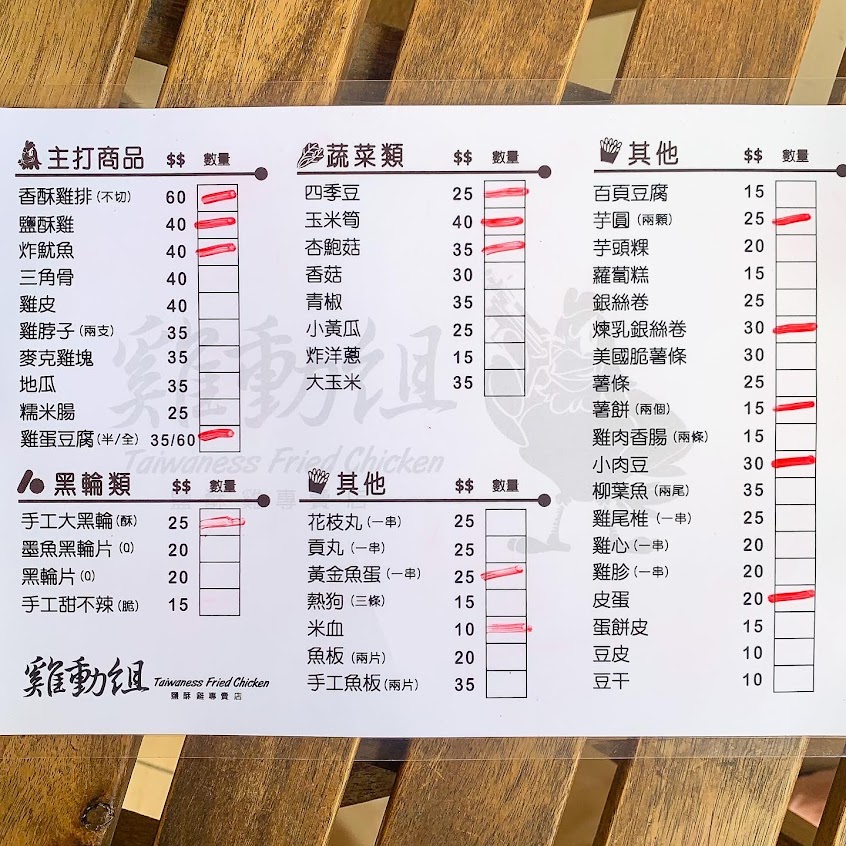 主打商品 $$ 數量
香酥雞排(不切) 60
鹽酥雞 40
炸魷魚 40
三角骨 40
雞皮 40
雞脖子(兩支) 35
麥克雞塊 35
地瓜 35
糯米腸 25
雞蛋豆腐(半/全) 35/60
黑輪類 $$ 數量
手工大黑輪(酥) 25
墨魚黑輪片(Q) 20
黑輪片(Q) 20
手工甜不辣(脆) 15
雞動組 Taiwaness Fried Chicken
鹽酥雞專賣店
蔬菜類 $$ 數量
四季豆 25
玉米筍 40
杏鮑菇 35
香菇 30
青椒 35
小黃瓜 25
炸洋蔥 15
大玉米 35
其他 $$ 數量
花枝丸(一串) 25
貢丸(一串) 25
黃金魚蛋(一串) 25
熱狗(三條) 15
米血 10
魚板(兩片) 20
手工魚板(兩片) 35
其他 $$ 數量
百頁豆腐 15
芋圓(兩顆) 25
芋頭粿 20
蘿蔔糕 15
銀絲卷 25
煉乳銀絲卷 30
美國脆薯條 30
薯條 25
薯餅(兩個) 15
雞肉香腸(兩條) 15
小肉豆 30
柳葉魚(兩尾) 35
雞尾椎(一串) 25
雞心(一串) 20
雞胗(一串) 20
皮蛋 20
蛋餅皮 15
豆皮 10
豆干 10
雞動組
Taiwaness Fried Chicken
鹽酥雞專賣店